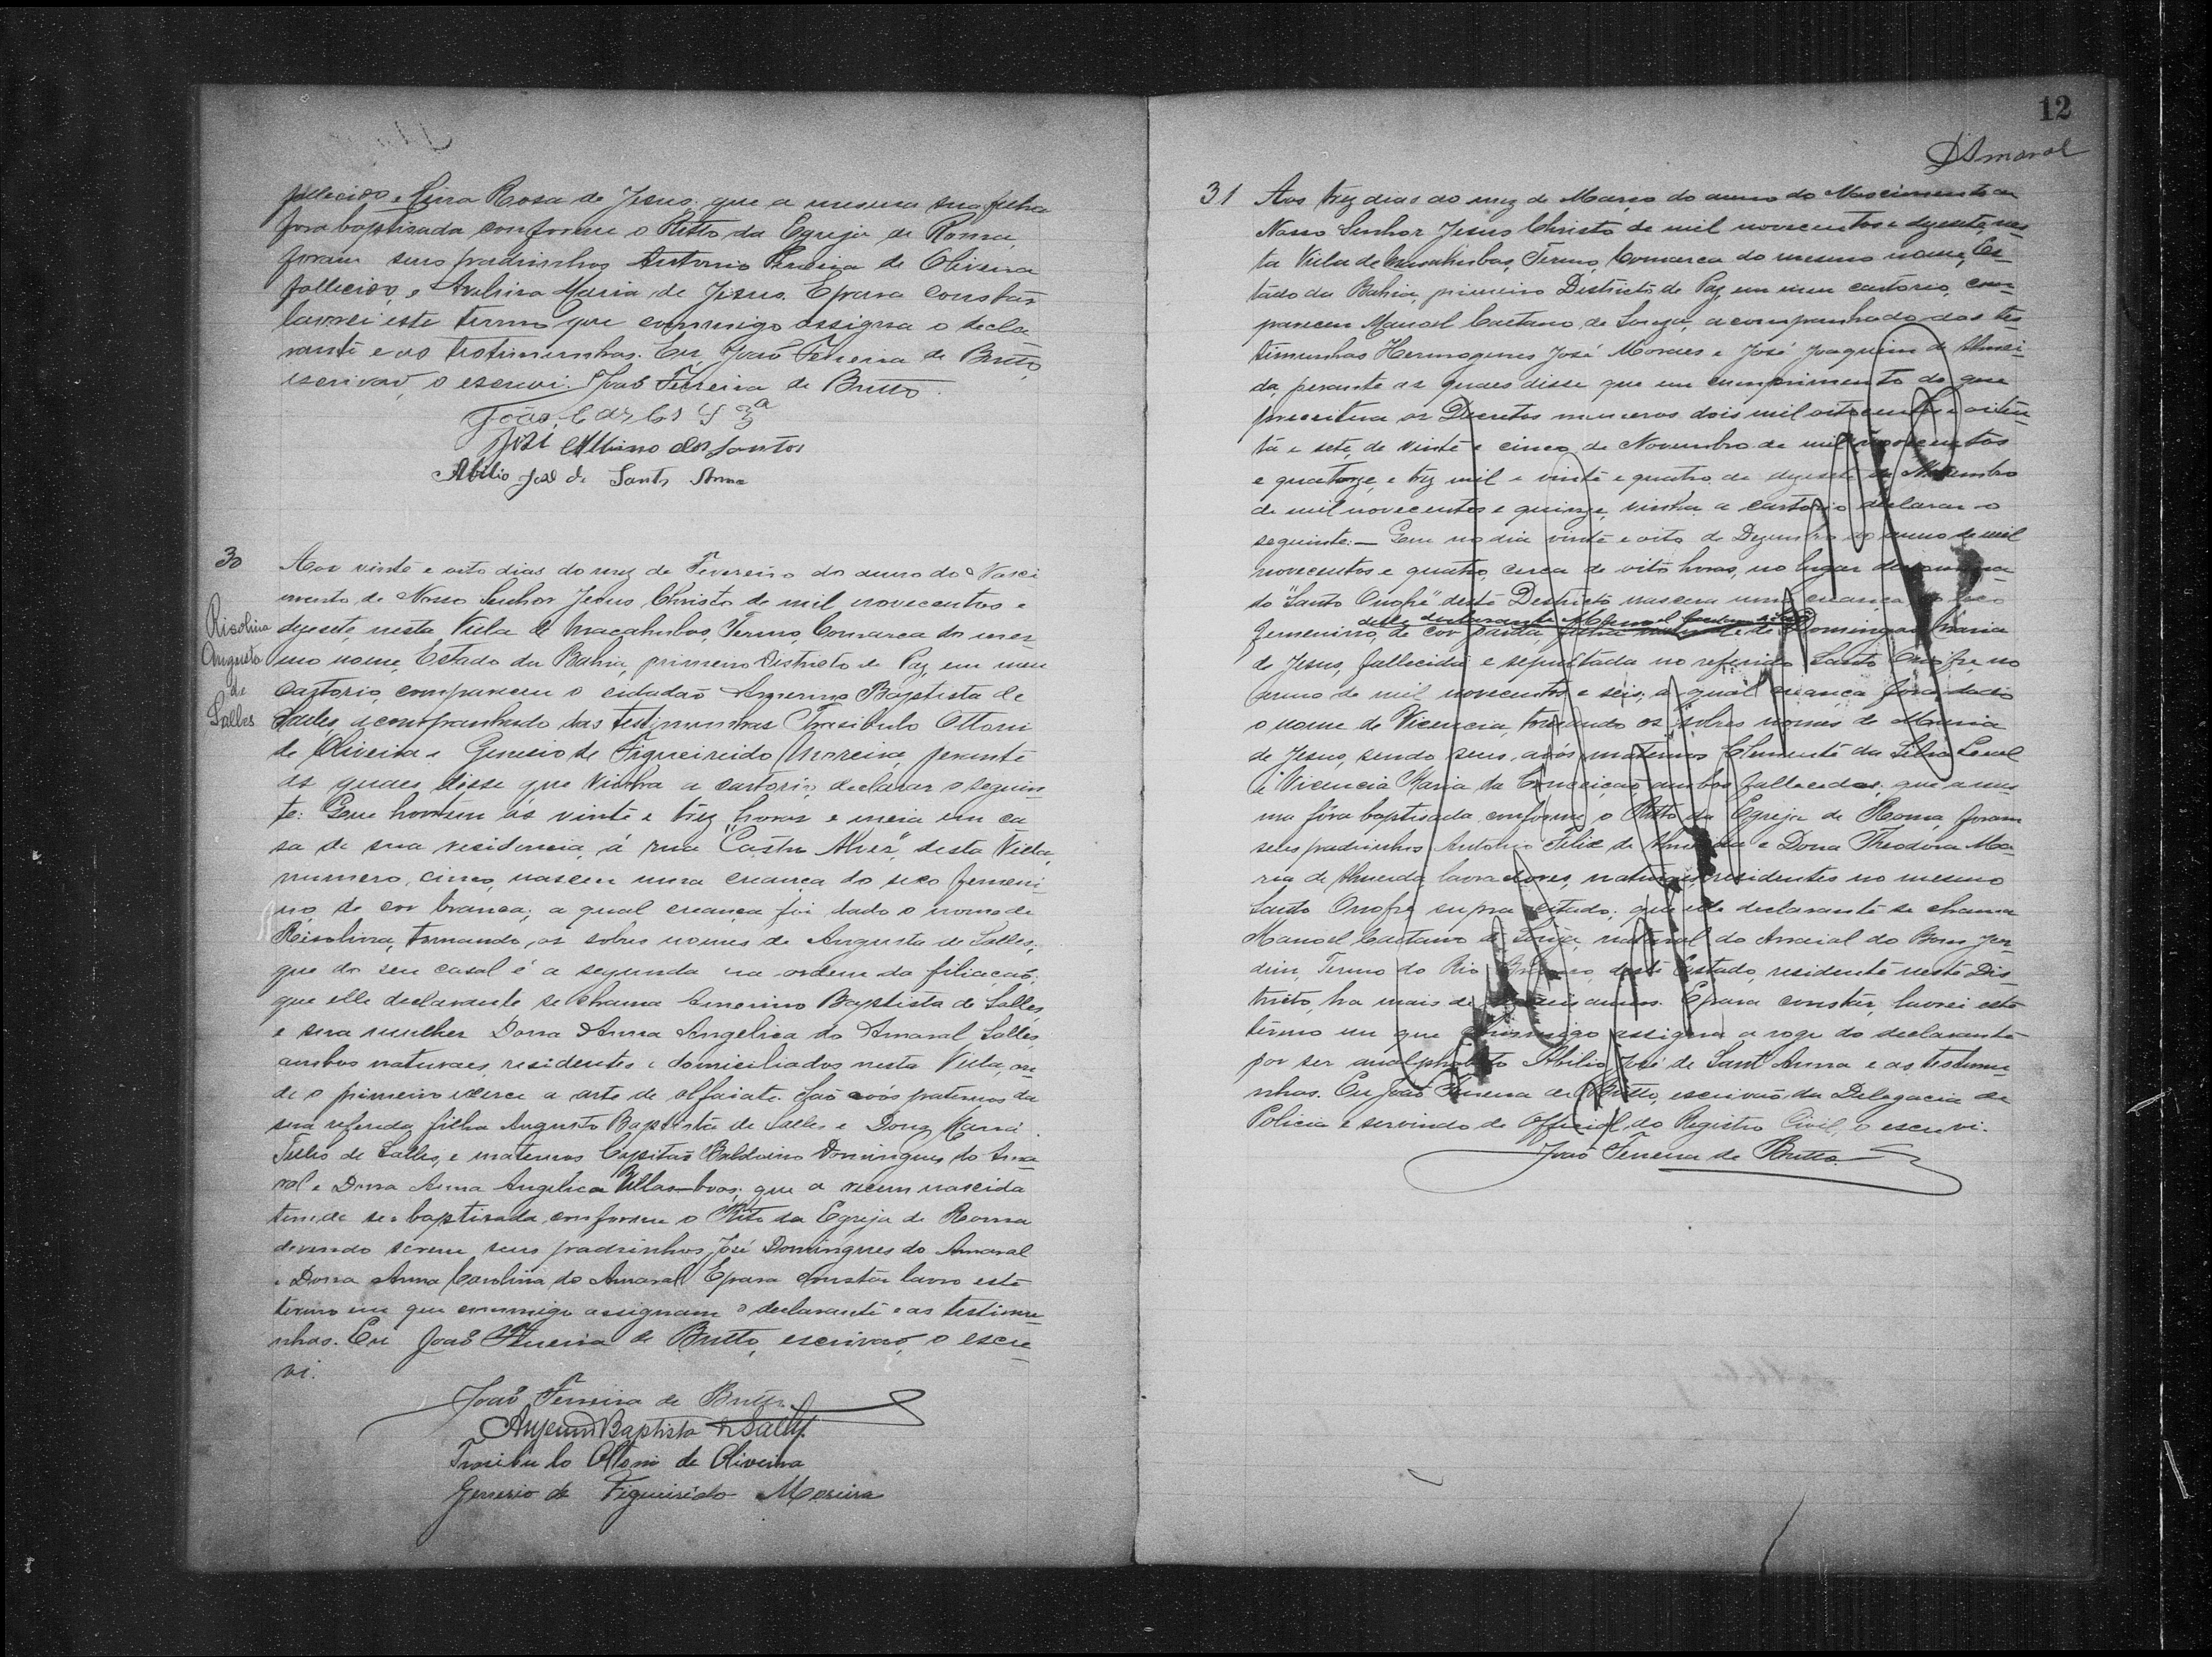 fallecido e Lina Rosa de Jesus; que a mesma sua filha
fora baptisada conforme o Ritto da Egreja de Roma,
foram seus padrinhos Antonio Pereira de Oliveira
fallecido, e Avelina Maria de Jesus. E para constar
lavrei este termo que commigo assigna o decla
rante e as testimunhas. Eu, João Ferreira de Britto,
escrivão, o escrevi. João Ferreira de Britto.
João Carlos
José Albino dos Santos
Abilio José de Santa Anna
30
Risolina
Augusta
de
Salles
Aos vinte e oito dias do mez de Fevereiro do anno do Nasci
mento de Nosso Senhor Jesus Christo de mil novecentos e
dezesete, nesta Villa de Macahubas, Termo, Comarca do mes-
mo nome, Estado da Bahia, primeiro Districto de Paz, em meu
Cartorio, compareceu o cidadão Baptista de
Salles, acompanhado das testimunhas Trasibulo Ottoni
de Oliveira e Genesio de Figueireido Moreira, perante
as quaes disse que vinha a cartorio declarar o seguin
te: Que hontem ás vinte e trez horas e meia em ca
sa de sua residencia, á rua "Castro Alves", desta Villa,
numero, cinco, nasceu uma creança do sexo femeni
no, de cor branca; a qual creança foi dado o nome de
Risolina, tomando, os sobres nomes de Augusta de Salles;
que do seu casal é a segunda na ordem da filiação;
que elle declarante se chama Baptista de Salles,
e sua mulher Dona Anna Angelica do Amaral Salles,
ambos naturaes, residentes e domiciliados nesta Villa, on
de o primeiro exerce a arte de alfaiate. São avós paternos da
sua referida filha Augusto Baptista de Salles e Dona Maria
de Salles, e maternos Capitão Balduino Domingues do Ama-
ral e Dona Anna Angelica Villas-boas; que a recem nascida
tem de ser baptisada conforme o Rito da Egreja de Roma
devendo serem seus padrinhos José Domingues do Amaral
e Dona Anna Carolina do Amaral. E para constar lavro este
termo em que commigo assignam o declarante e as testimu-
nhas. Eu João Ferreira de Britto, escrivão, o escre-
vi.
João Ferreira de Britto.
Baptista de Salles
Trasibulo Ottoni de Oliveira
Genesio de Figueirêdo Moreira
12
DAmaral
31 Aos trez dias do mez de Março do anno do Nascimento de
Nosso Senhor Jesus Christo de mil novecentos e dezesete, nes-
ta Villa de Macahubas, Termo, Comarca do mesmo nome, Es-
tado da Bahia, primeiro Districto de Paz, em meu cartorio, com-
pareceu Manoel Caetano de Souza, acompanhado das tes
timunhas Hermogenes José Moraes e José Joaquim de Almei-
da, perante as quaes disse que em cumprimento do que
preceitua os Decretos numeros dois mil oitocentos e oiten
ta e sete, de vinte e cinco de Novembro de mil novecentos
e quatorze, e trez mil e vinte e quatro de dezesete de Novembro
de mil novecentos e quinze, vinha a cartorio declarar o
seguinte: — Que no dia vinte e oito de Dezembro do anno de mil
novecentos e quatro, cerca de oito horas, no lugar denomina
do "Santo Onofre" deste Districto nascera uma creança do sexo
delle declarante Manoel Caetano
femenino, de cor parda, filha natural de Domingas Maria
de Jesus, fallecida e sepultada no referido Santo Onofre, no
anno de mil novecentos e seis; a qual creança fôra dado
o nome de Vicencia, tomando os sobres nomes de Maria
de Jesus, sendo seus avós maternos Clemente da Silva Leal
e Vicencia Maria da Conceição, ambos fallecidos; que a mes
ma fôra baptisada conforme o Ritto da Egreja de Roma, foram
seus padrinhos Antonio Felix de Almeida e Dona Theodora Ma-
ria de Almeida, lavradores, naturaes, residentes no mesmo
Santo Onofre supra citado; que elle declarante se chama
Manoel Caetano de Souza, natural do Arraial do Bom Jar-
dim, Termo do Rio Branco, deste Estado, residente neste Dis
tricto, ha mais de annos. E para constar, lavrei este
termo em que commigo assigna a rogo do declarante
por ser analphabeto Abilio José de Sant'Anna e as testemu
nhas. Eu João Ferreira de Britto, escrivão da Delegacia de
Policia e servindo de Official do Registro Civil, o escrevi.
João Ferreira de Britto